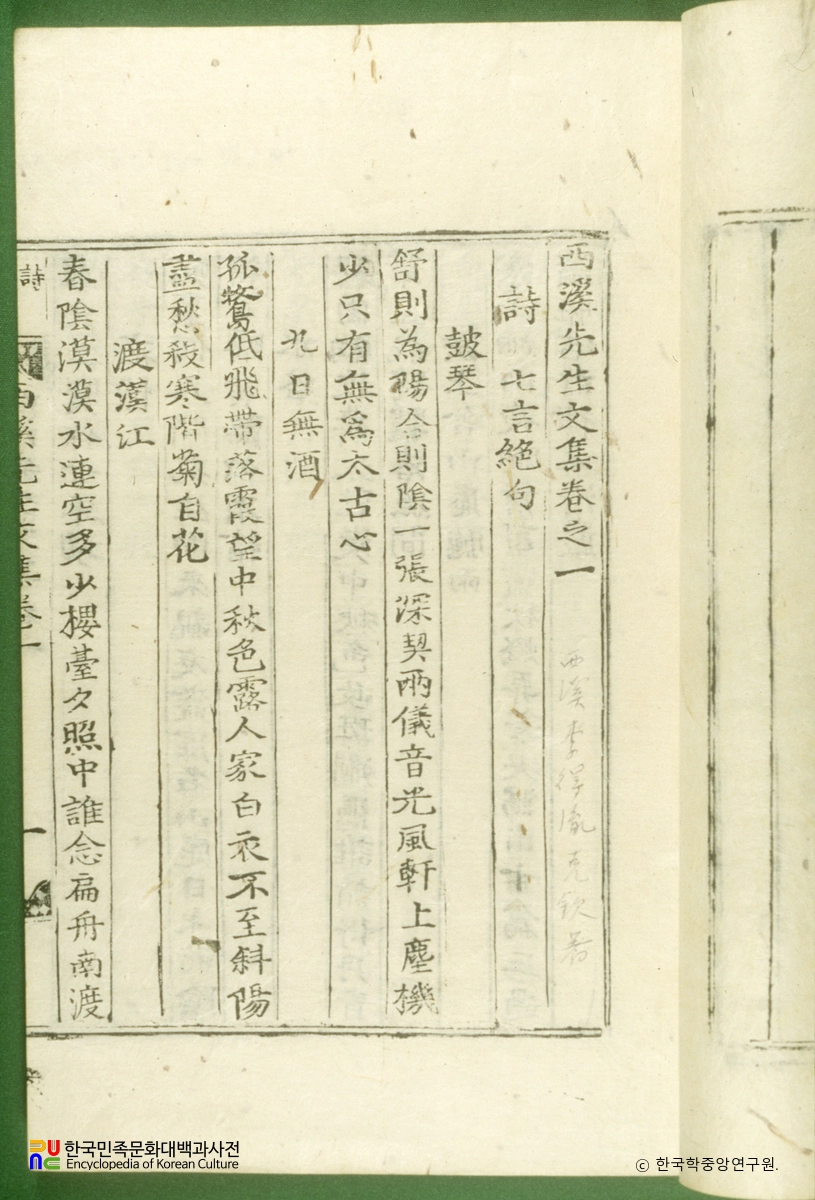 西溪先生文集卷之一
西溪 李得胤 克欽 著
詩 七言絕句
鼓琴
舒則為陽合則陰一張深契兩儀音光風軒上塵機
少只有無爲太古心
九日無酒
孤鶩低飛帶落霞望中秋色露人家白衣不至斜陽
盡愁殺寒階菊自花
渡漢江
春陰漠漠水連空多少樓臺夕照中誰念扁舟南渡
詩
西溪先生文集卷一
一
한국민족문화대백과사전
Encyclopedia of Korean Culture
© 한국학중앙연구원.